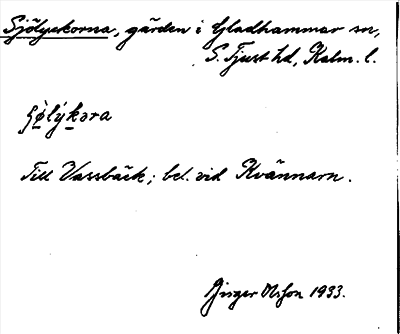 Sjölyckorna, gården i Gladhammar sn,
S. Tjust hd, Kalm. l.
Till Vassbäck; bel. vid Kvännarn.
Birger Olsson 1933.